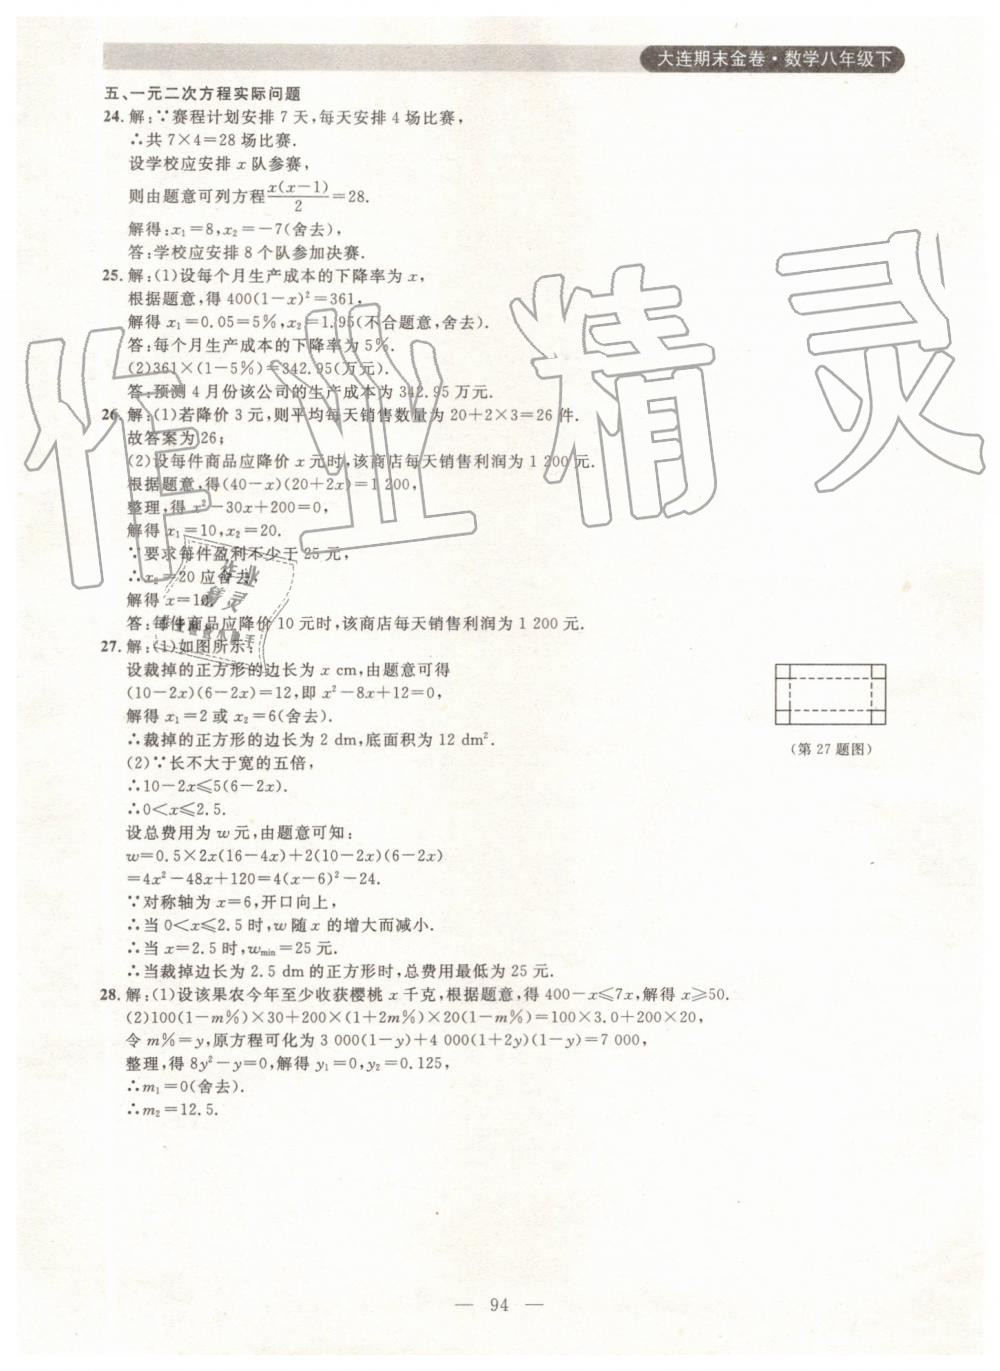 大连期末金卷·数学八年级下
五、一元二次方程实际问题
24. 解:∵赛程计划安排 7 天,每天安排 4 场比赛,
∴共 7×4=28 场比赛.
设学校应安排 x 队参赛,
则由题意可列方程x(x-1)/2=28.
解得:x₁=8,x₂=-7(舍去),
答:学校应安排 8 个队参加决赛.
25. 解:(1)设每个月生产成本的下降率为 x,
根据题意,得 400(1-x)²=361,
解得 x₁=0.05=5%,x₂=1.95(不合题意,舍去).
答:每个月生产成本的下降率为 5%.
(2)361×(1-5%)=342.95(万元).
答:预测 4 月份该公司的生产成本为 342.95 万元.
26. 解:(1)若降价 3 元,则平均每天销售数量为 20+2×3=26 件.
故答案为26;
(2)设每件商品应降价 x 元时,该商店每天销售利润为 1 200 元.
根据题意,得(40-x)(20+2x)=1 200,
整理,得 x²-30x+200=0,
解得 x₁=10,x₂=20.
∵要求每件盈利不少于 25 元,
∴x₂=20 应舍去,
解得 x=10.
答:每件商品应降价 10 元时,该商店每天销售利润为 1 200 元.
27. 解:(1)如图所示:
设裁掉的正方形的边长为 x cm,由题意可得
(10-2x)(6-2x)=12,即 x²-8x+12=0,
解得 x₁=2 或 x₂=6(舍去).
∴裁掉的正方形的边长为 2 dm,底面积为 12 dm².
(第 27 题图)
(2)∵长不大于宽的五倍,
∴10-2x≤5(6-2x).
∴0<x≤2.5.
设总费用为 w 元,由题意可知:
w=0.5×2x(16-4x)+2(10-2x)(6-2x)
=4x²-48x+120=4(x-6)²-24.
∵对称轴为 x=6,开口向上,
∴当 0<x≤2.5 时,w 随 x 的增大而减小.
∴当 x=2.5 时,wmin=25 元.
∴当裁掉边长为 2.5 dm 的正方形时,总费用最低为 25 元.
28. 解:(1)设该果农今年至少收获樱桃 x 千克,根据题意,得 400-x≤7x,解得 x≥50.
(2)100(1-m%)×30+200×(1+2m%)×20(1-m%)=100×3.0+200×20,
令 m%=y,原方程可化为 3 000(1-y)+4 000(1+2y)(1-y)=7 000,
整理,得 8y²-y=0,解得 y₁=0,y₂=0.125,
∴m₁=0(舍去).
∴m₂=12.5.
作业精灵
作业
精灵
— 94 —